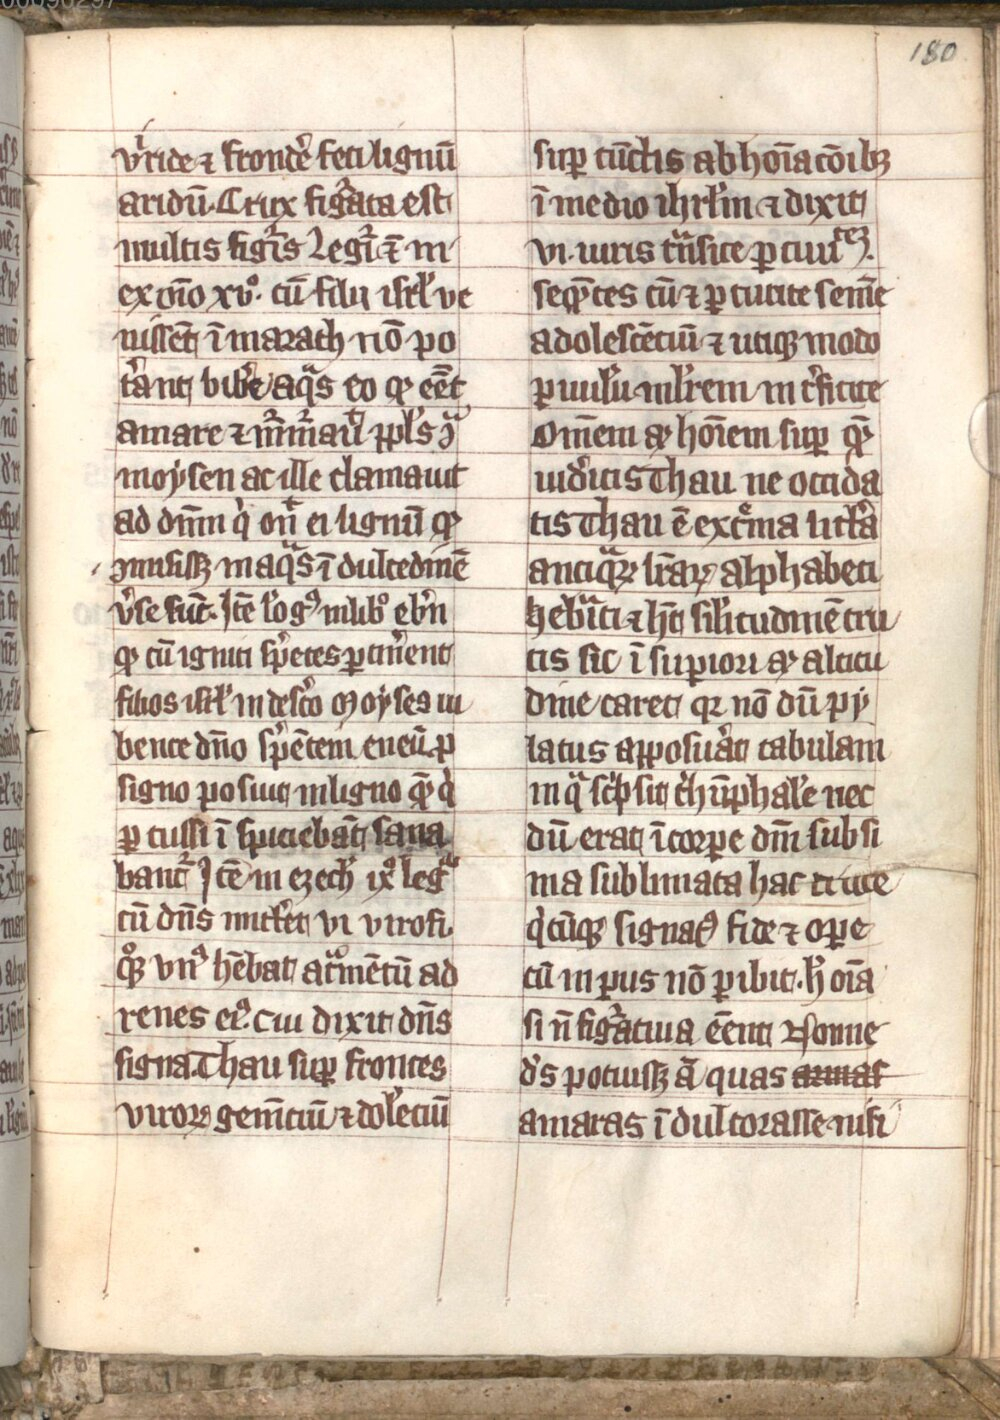 180
v̾ride ⁊ frondē feci lignū
aridū. Crux figᵃ̄ta est
multis figⁱs Legiᷓ ē in
exoīo xvº. cū filii isrl̄ ve
nissēt ī marath nō po
t̾ant bib̾e aq̄ᵃs eo ꝙ eēt
amare ⁊ mͬmͬaūt ppl̄s ꝯᵃ
moysen ac ille clamauit
ad dn̄m qⁱ on̄t ei lignū ꝙ
ꝯmisissꝫ in aqᵃs ī dulcedinē
v̾se sūt. Itē log̾ꝰ in libº eb̾n
ꝙ cū igniti sp̾etes ꝑ tim̾ent
filios isrl̄ in des̾to Moyses iu
bente dn̄o sp̾ētem eneū. ꝓ
signo posuit in ligno quē q̾
ꝑcussi īspiciebāt sana
bant᷑ Itē in ezech̄ ixº legᵗᷓ
cū dn̄s mitt̾et vi viros.
qº₎ꝫ vn̾ꝰ hēbat atᵃmētū ad
renes eiꝰ. cui dixit dn̄s
signa. Thau suꝑ frontes
viroꝝ gem̄tiū ⁊ dol̾etiū
suꝑ cūctis abhoīacōibꝫ
ī medio ihrl̄m ⁊ dixit
vi. uiris tᵃ̄nsite ꝑ ciuitᵗᵉꝫ.
seqn̄tes eū ⁊ ꝑcutite senē
adolescētiū ⁊ utiqꝫ modo
ꝑuulū ml̾rem int̾ficite
Omem aūt hoīem suꝑ quē
uid̾itis Thau ne occida
tis Thau ē extᵉma litt̾a
antiqᵃꝝ lr̄aꝝ alphabeti
hebᵃ̄ici ⁊ hꝫ sil̾itudinē cru
cis sic ī superiori aūt altitu
dine caret qꝛ nō dū py
latus apposu̾at tabulam
in qᵃ scⁱpsit tⁱūphale nec
dū erat ī corpe dn̄i sub si
ma sublimata hac cruce
qⁱcūqꝫ signatꝰ fide ⁊ ope
cū inpiis nō ꝑibit. h̾ oīa
si n̄ figᵃ̄tiua eēnt Nonne
d̾s potuissꝫ aᷓquas amas
amaras ī dulcorasse nisi